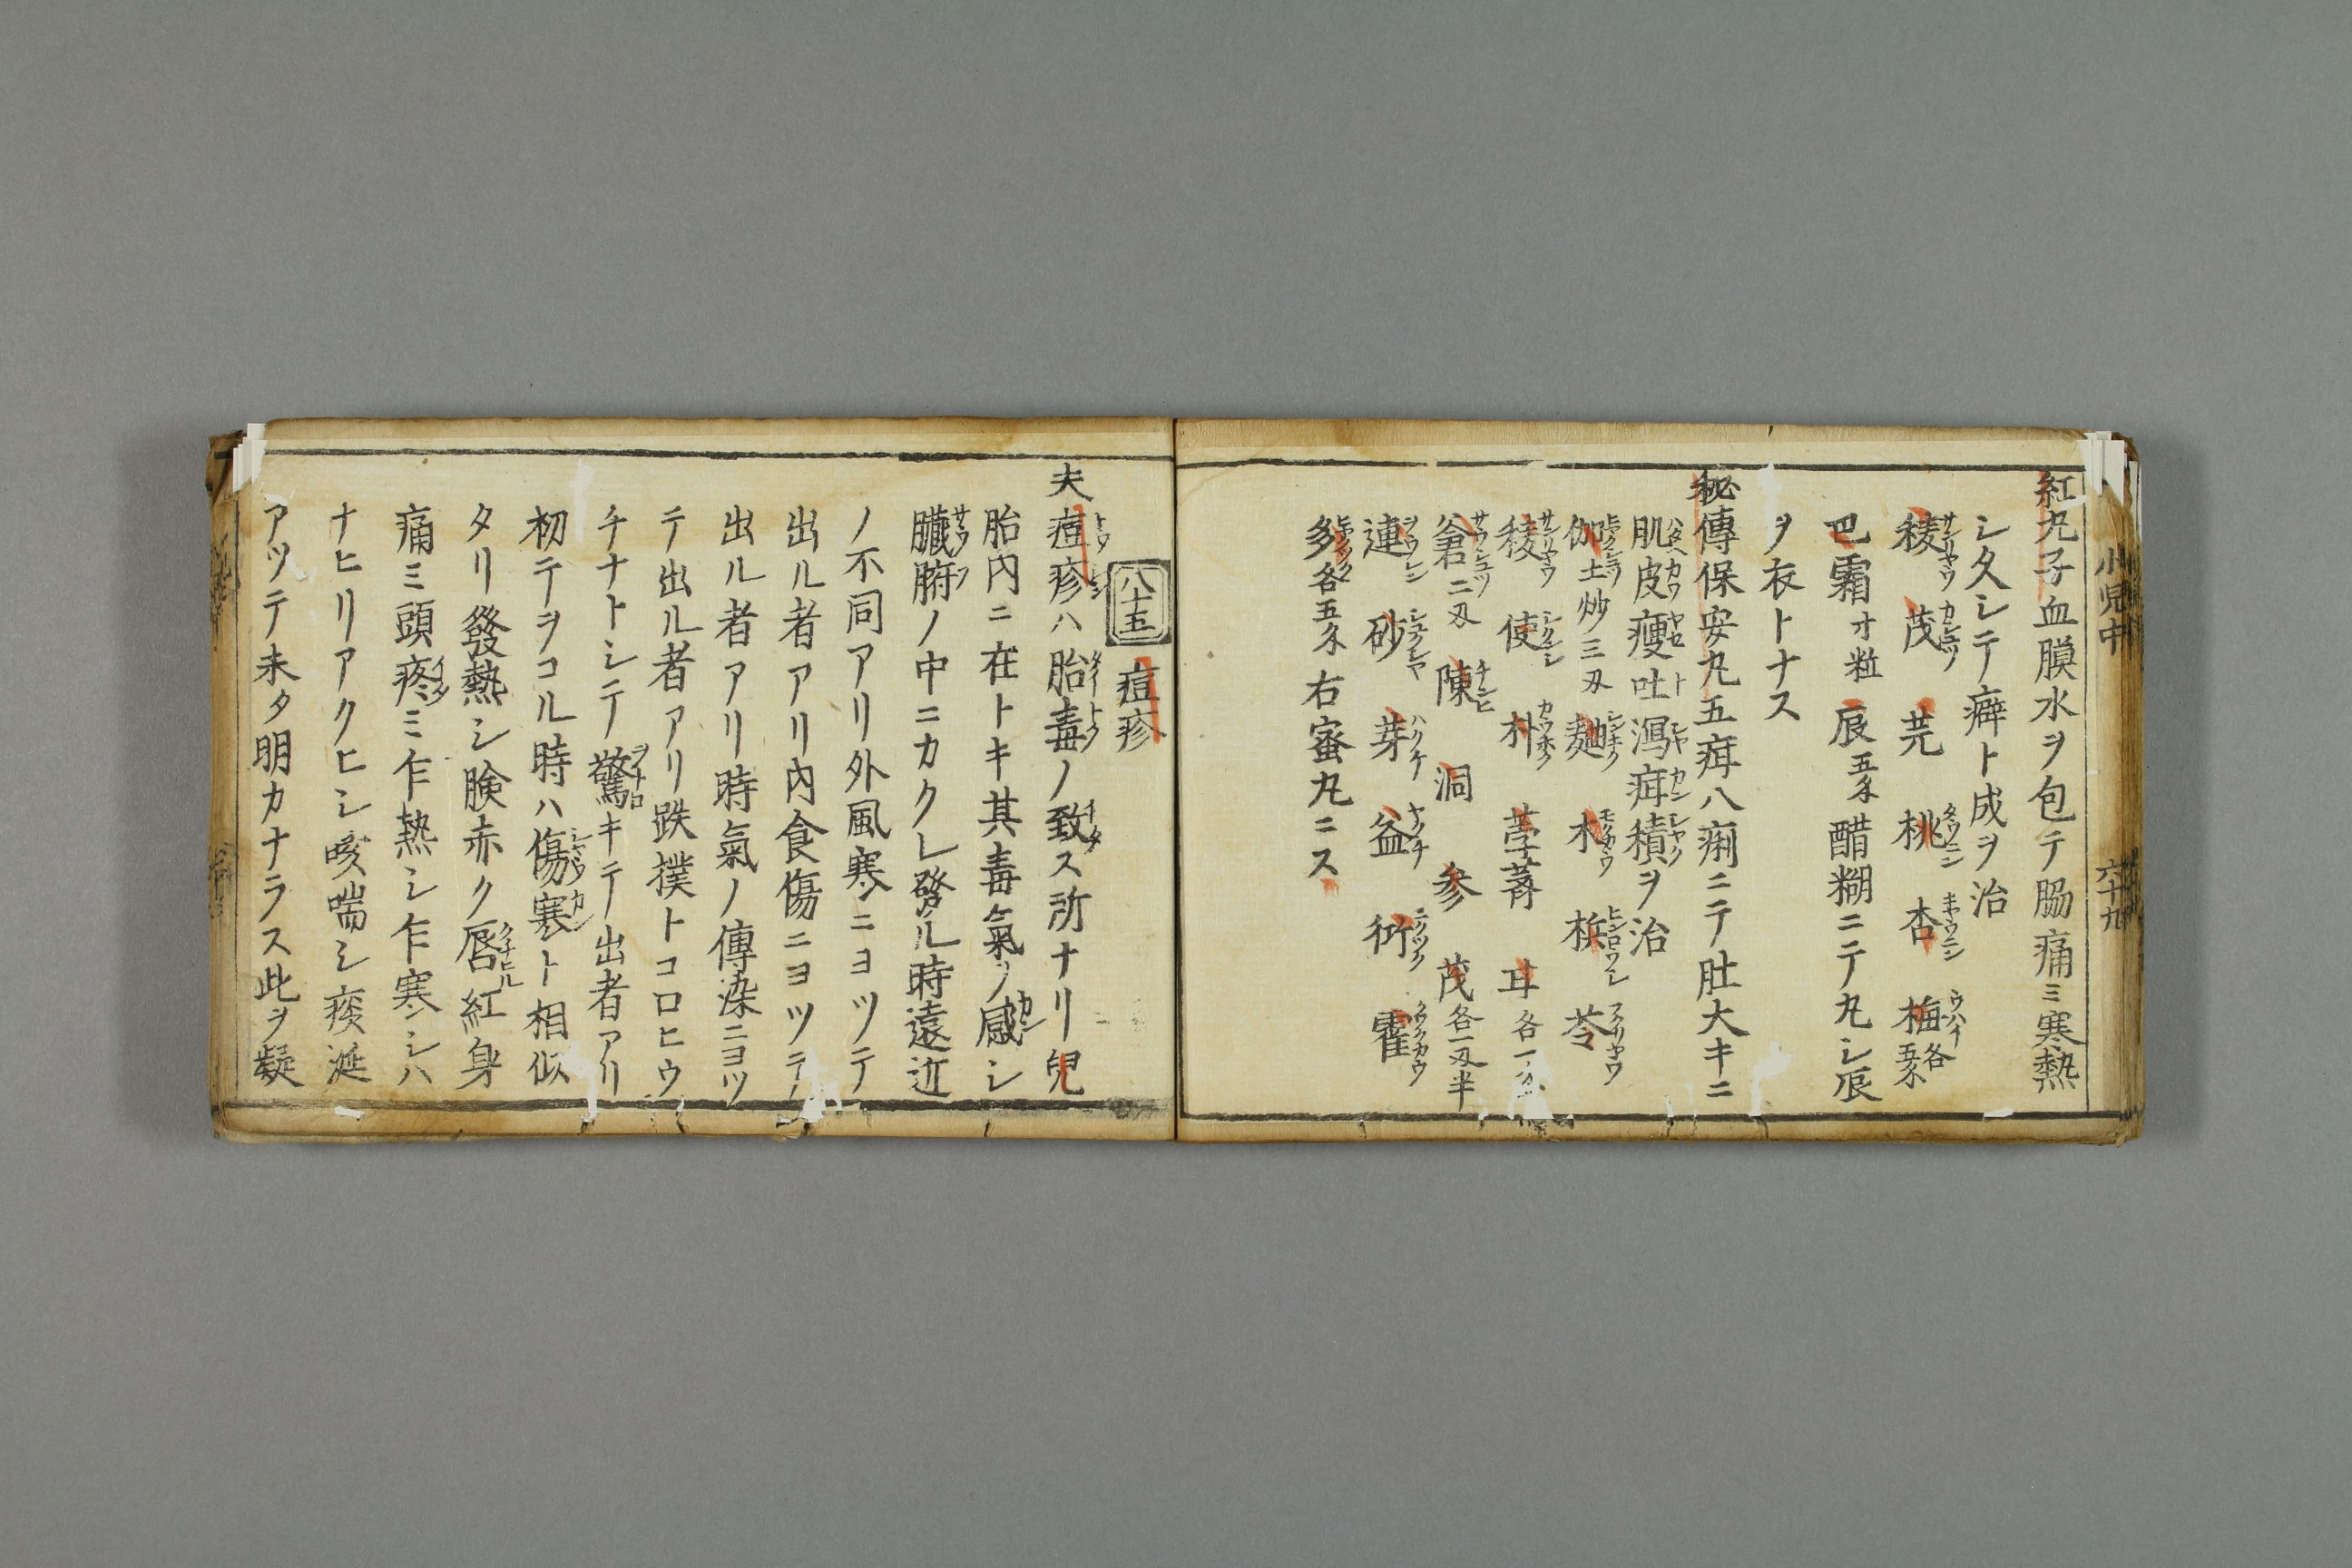 小児中 六十九
紅丸子血膜水ヲ包テ脇痛ミ寒熱
シ久シテ癖ト成ヲ治
稜 茂 芫 桃 杏 梅各五久
巴霜オ粒 辰五久 醋糊ニテ丸シ辰
ヲ衣トナス
秘傳保安丸五疳八痢ニテ肚大キニ
肌皮瘦吐瀉疳積ヲ治
伽土炒三刄 麹 木 梹 苓
稜 使 朴 葶藶 耳各一
蒼二刄 陳 洞 参 茂各一刄半
連 砂 芽 益 術 霍
多各五久 右蜜丸ニス
八十五 痘疹
夫痘疹ハ胎毒ノ致ス所ナリ兒
胎内ニ在トキ其毒氣ヲ感シ
臓腑ノ中ニカクレ發ル時遠近
ノ不同アリ外風寒ニヨツテ
出ル者アリ内食傷ニヨツテ
出ル者アリ時氣ノ傳染ニヨツ
テ出ル者アリ跌撲トコロヒウ
チナトシテ驚キテ出者アリ
初テヲコル時ハ傷寒ト相似
タリ發熱シ臉赤ク唇紅身
痛ミ頭疼ミ乍熱シ乍寒シハ
ナヒリアクヒシ咳喘シ痰涎
アツテ未タ明カナラス此ヲ疑